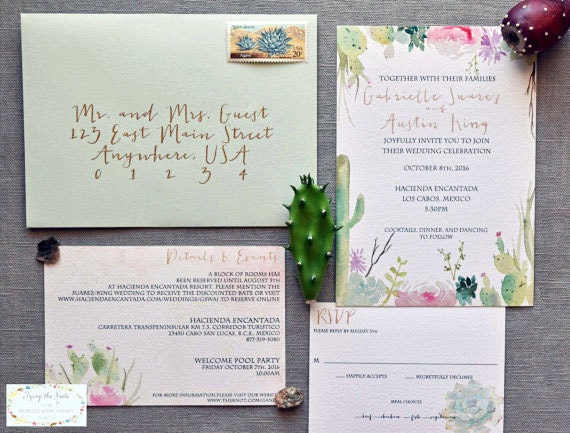 Agave desert
USA
20c
Mr. and Mrs. Guest
123 East Main Street
Anywhere, USA
0 1 2 3 4
TOGETHER WITH THEIR FAMILIES
Gabrielle Suarez
and
Austin King
JOYFULLY INVITE YOU TO JOIN
THEIR WEDDING CELEBRATION
OCTOBER 8TH, 2016
HACIENDA ENCANTADA
LOS CABOS, MEXICO
5:30PM
COCKTAILS, DINNER, AND DANCING
TO FOLLOW
Details & Events
A BLOCK OF ROOMS HAS
BEEN RESERVED UNTIL AUGUST 9TH
AT HACIENDA ENCANTADA RESORT. PLEASE MENTION THE
SUAREZ/KING WEDDING TO RECEIVE THE DISCOUNTED RATE OR VISIT
WWW.HACIENDAENCANTADA.COM/WEDDINGS/GSWAI TO RESERVE ONLINE
HACIENDA ENCANTADA
CARRETERA TRANSPENINSULAR KM 7.3, CORREDOR TURISTICO
23450 CABO SAN LUCAS, B.C.S., MEXICO
877-319-5080
WELCOME POOL PARTY
FRIDAY OCTOBER 7TH, 2016
10:00AM
FOR MORE INFORMATION PLEASE VISIT
WWW.THEKNOT.COM/GANE
RSVP
PLEASE REPLY BY AUGUST 5TH
M
HAPPILY ACCEPTS REGRETFULLY DECLINES
MEAL CHOICE
beef chicken fish vegetarian
Tying the Knots